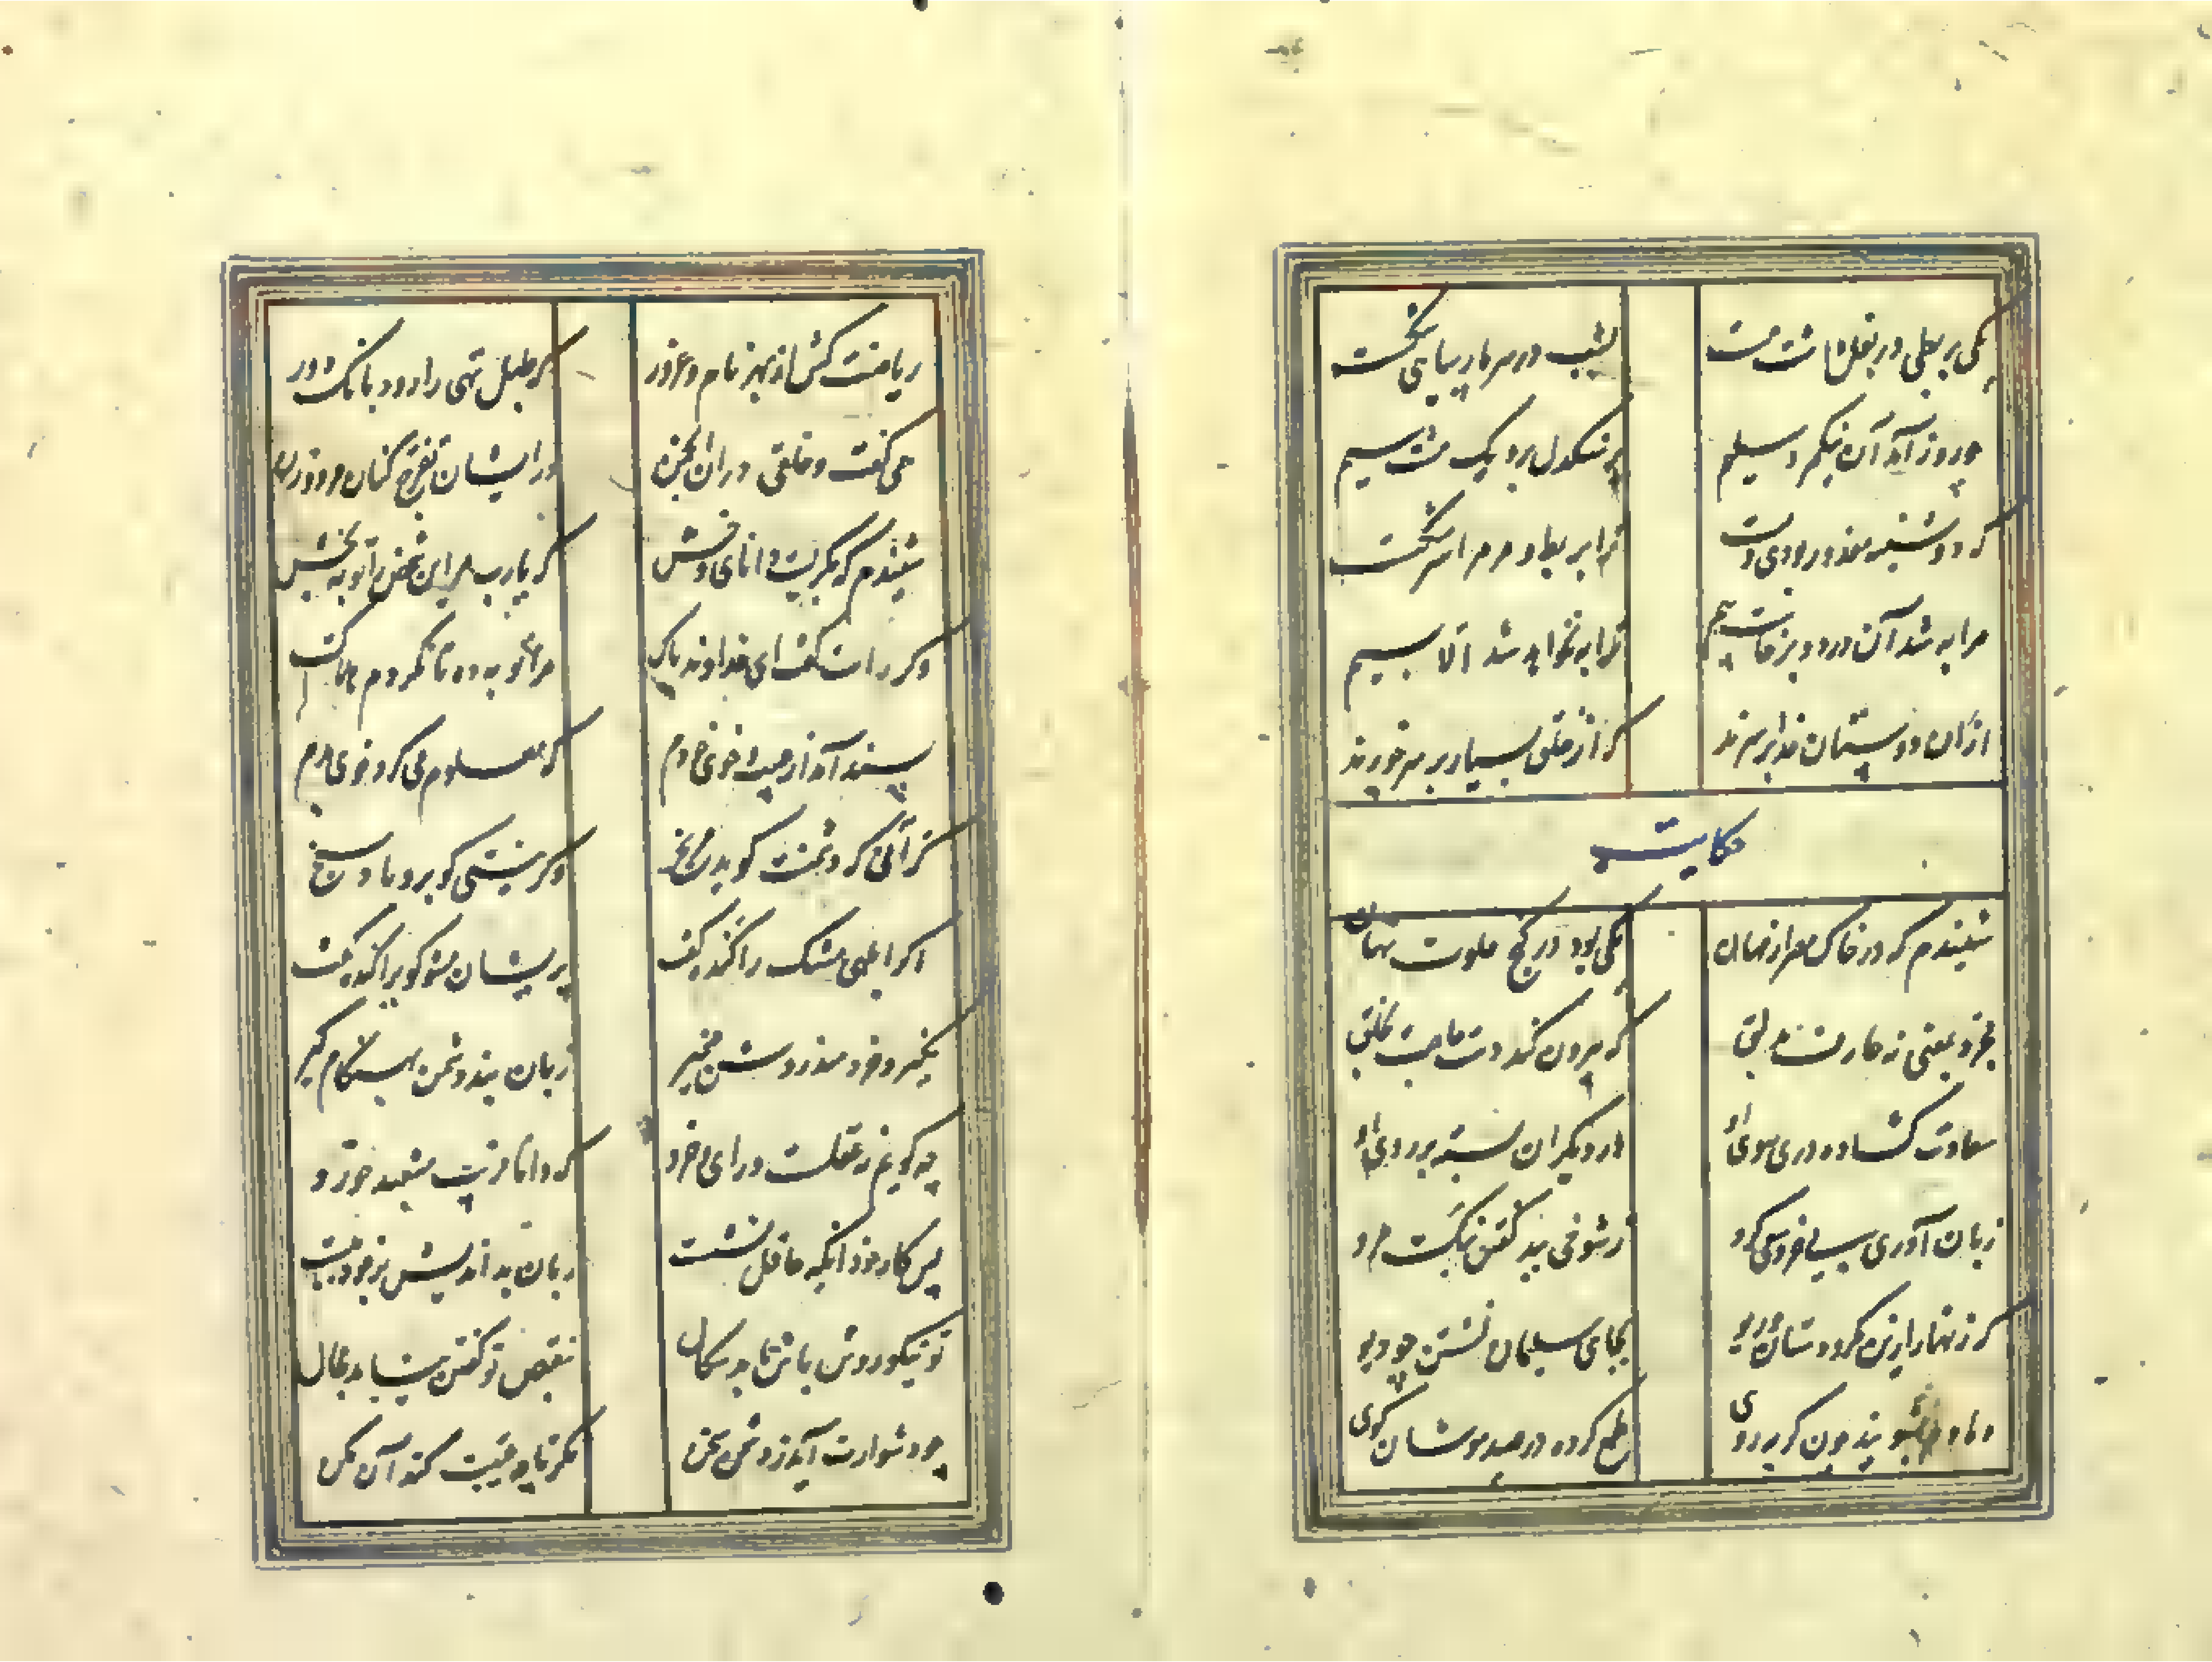 یکی بربطی در بغل داشت مست بشب در سر پارسایی شکست
چو روز آمد آن نیکمرد سلیم بر سنکدل برد یک مشت سیم
که دوشینه معذور بودی و مست ترا بربط و مرمرا سر شکست
مرا به شد آن درد و برخاست بیم ترا به نخواهد شد الا بسیم
ازان دوستان خدا بر سرند که از خلق بسیار بر سر خورند
حکایت
شنیدم که در خاک نهان یکی بود در کنج خلوت نهان
مجرد بمعنی نه عارف بدلق که بیرون کند دست حاجت بخلق
سعادت کشاده دری سوی او در از دیکران بسته بر روی او
زبان آوری بیخرد سعی کرد ز شوخی ببد کفتن نیکمرد
که زنهار ازین مکر و دستان و ریو بجای سلیمان نشستن چو دیو
دمادم بشویند چون کربه روی طمع کرده در صید موشان کوی
ریاضت کش از بهر نام و غرور که طبل تهی را رود بانک دور
همی کفت و خلقی دران انجمن بر ایشان تفرج کنان مرد و زن
شنیدم که بکریست دانای وخش که یارب مر این شخص را توبه بخش
وکر راست کفت ای خداوند پاک مرا توبه ده تا نکردم هلاک
پسند آمد از عیب خودم که معلوم من کرد خوی بدم
کر آنی که دشمنت کوید مرنج وکر نیستی کو برو باد سنج
اکر ابلهی مشک را کنده کفت پریشان مشو کو پراکنده کفت
نکیرد خردمند روشن ضمیر زبان بند دشمن هنکامه کیر
نه آیین عقلست و رای و خرد که دانا فریب مشعبد خورد
پس کار خود آنکه عاقل نشست زبان بد اندیش بر خود ببست
تو نیکو روش باش تا بد سکال بنقص تو کفتن نیابد مجال
چو دشوارت آید ز دشمن سخن نکر تا چه عیبت کند آن مکن